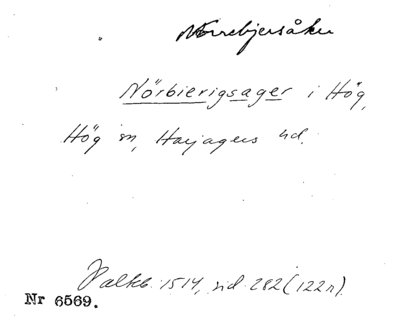 Norrebjersåker
Nörbierigsager i Hög,
Hög sn, Harjagers hd.
Palkb. 1514, sid. 282 (122 r).
Nr 6569.